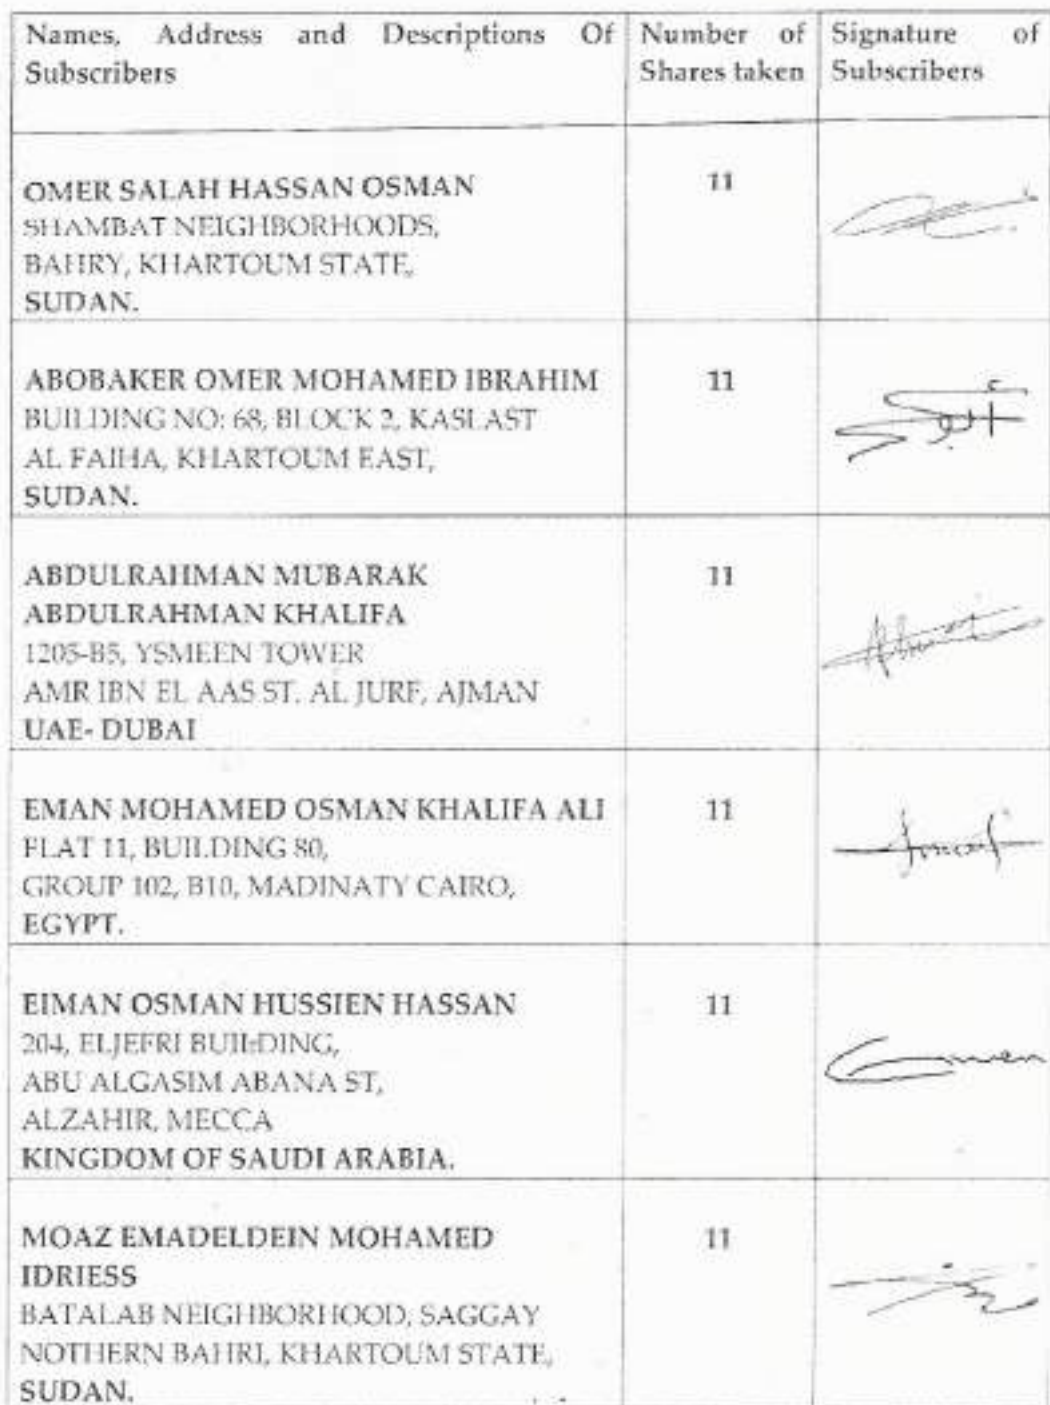 Names, Address and Descriptions Of Subscribers
Number of Shares taken
Signature of Subscribers
OMER SALAH HASSAN OSMAN
11
SHAMBAT NEIGHBORHOODS,
BAHRY, KHARTOUM STATE,
SUDAN.
ABOBAKER OMER MOHAMED IBRAHIM
11
BUILDING NO: 68, BLOCK 2, KASLAST
AL FAIHA, KHARTOUM EAST,
SUDAN.
ABDULRAHMAN MUBARAK
11
ABDULRAHMAN KHALIFA
1205-B5, YSMEEN TOWER
AMR IBN EL AAS ST. AL JURF, AJMAN
UAE- DUBAI
EMAN MOHAMED OSMAN KHALIFA ALI
11
FLAT 11, BUILDING 80,
GROUP 102, B10, MADINATY CAIRO,
EGYPT.
EIMAN OSMAN HUSSIEN HASSAN
11
204, ELJEFRI BUILDING,
ABU ALGASIM ABANA ST,
ALZAHIR, MECCA
KINGDOM OF SAUDI ARABIA.
MOAZ EMADELDEIN MOHAMED
11
IDRIESS
BATALAB NEIGHBORHOOD, SAGGAY
NOTHERN BAHRI, KHARTOUM STATE,
SUDAN.